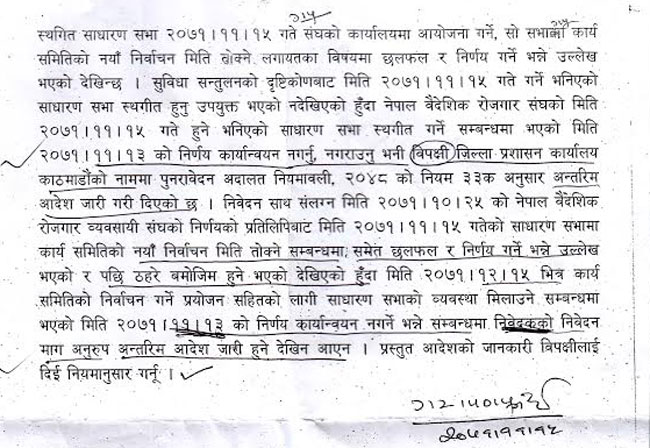 स्थगित साधारण सभा २०७१।११।१५ गते संघको कार्यालयमा आयोजना गर्ने, सो सभाको कार्य
समितिको नयाँ निर्वाचन मिति तोक्ने लगायतका विषयमा छलफल र निर्णय गर्ने भन्ने उल्लेख
भएको देखिन्छ । सुविधा सन्तुलनको दृष्टिकोणबाट मिति २०७१।११।१५ गते गर्ने भनिएको
साधारण सभा स्थगीत हुनु उपयुक्त भएको नदेखिएको हुँदा नेपाल बैदेशिक रोजगार संघको मिति
२०७१।११।१५ गते हुने भनिएको साधारण सभा स्थगीत गर्ने सम्बन्धमा भएको मिति
२०७१।११।१३ को निर्णय कार्यान्वयन नगर्नु, नगराउनु भनी विपक्षी जिल्ला प्रशासन कार्यालय
काठमाडौंको नाममा पुनरावेदन अदालत नियमावली, २०४८ को नियम ३३क अनुसार अन्तरिम
आदेश जारी गरी दिएको छ । निवेदन साथ संलग्न मिति २०७१।१०।२५ को नेपाल बैदेशिक
रोजगार व्यवसायी संघको निर्णयको प्रतिलिपिबाट मिति २०७१।११।१५ गतेको साधारण सभामा
कार्य समितिको नयाँ निर्वाचन मिति तोक्ने सम्बन्धमा समेत छलफल र निर्णय गर्ने भन्ने उल्लेख
भएको र पछि ठहरे बमोजिम हुने भएको देखिएको हुँदा मिति २०७१।१२।१५ भित्र कार्य
समितिको निर्वाचन गर्ने प्रयोजन सहितको लागी साधारण सभाको व्यवस्था मिलाउने सम्बन्धमा
भएको मिति २०७१।११।१३ को निर्णय कार्यान्वयन नगर्ने भन्ने संम्बन्धमा निवेदकको निवेदन
माग अनुरुप अन्तरिम आदेश जारी हुने देखिन आएन । प्रस्तुत आदेशको जानकारी विपक्षीलाई
दिई नियमानुसार गर्नू ।